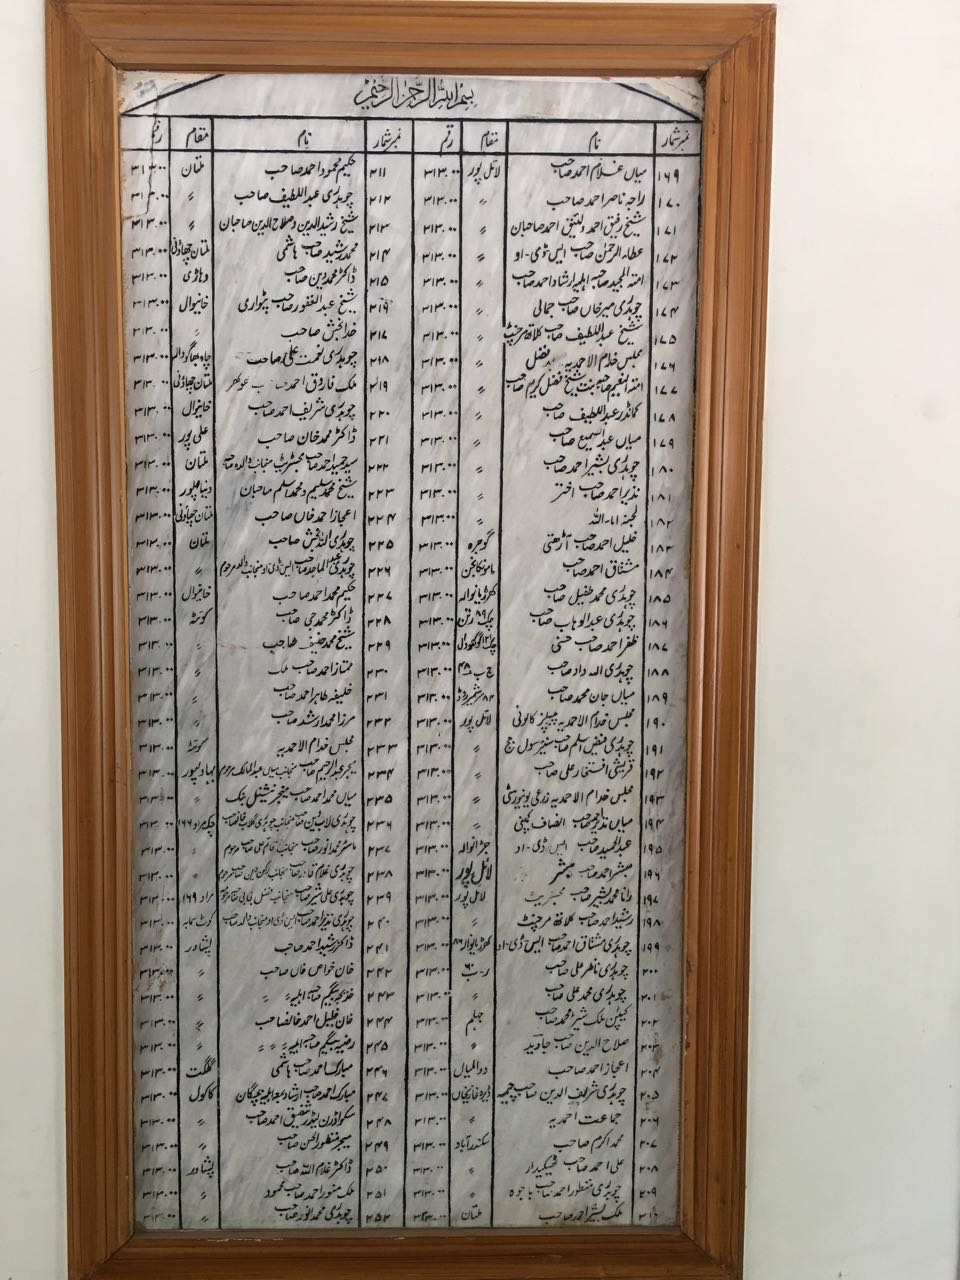 بسم اللہ الرحمٰن الرحیم
نمبر شمار نام مقام رقم نمبر شمار نام مقام رقم
۱۶۹ میاں غلام احمد صاحب لائل پور ۳۱۳.۰۰ ۲۱۱ حکیم محمود احمد صاحب ملتان ۳۱۳.۰۰
۱۷۰ راجہ ناصر احمد صاحب 〃 ۳۱۳.۰۰ ۲۱۲ چوہدری عبداللطیف صاحب 〃 ۳۱۳.۰۰
۱۷۱ شیخ رفیق احمد ولئیق احمد صاحبان 〃 ۳۱۳.۰۰ ۲۱۳ شیخ رشید الدین و صلاح الدین صاحبان 〃 ۳۱۳.۰۰
۱۷۲ عطاء الرحمٰن صاحب ایس۔ڈی۔او 〃 ۳۱۳.۰۰ ۲۱۴ محمد رشید صاحب ہاشمی ملتان چھاؤنی ۳۱۳.۰۰
۱۷۳ امۃ المجید صاحبہ اہلیہ ارشاد احمد صاحب 〃 ۳۱۳.۰۰ ۲۱۵ ڈاکٹر محمد دین صاحب وہاڑی ۳۱۳.۰۰
۱۷۴ چوہدری میر خاں صاحب جمالی 〃 ۳۱۳.۰۰ ۲۱۶ شیخ عبدالغفور صاحب پٹواری خانیوال ۳۱۳.۰۰
۱۷۵ شیخ عبداللطیف صاحب کلاتھ مرچنٹ 〃 ۳۱۳.۰۰ ۲۱۷ خدا بخش صاحب 〃 ۳۱۳.۰۰
۱۷۶ مجلس خدام الاحمدیہ فضل 〃 ۳۱۳.۰۰ ۲۱۸ چوہدری نعمت علی صاحب ۳۱۳.۰۰
۱۷۷ امۃ النعیم صاحبہ بنت شیخ فضل کریم صاحب 〃 ۳۱۳.۰۰ ۲۱۹ ملک فاروق احمد صاحب کھوکھر ملتان چھاؤنی ۳۱۳.۰۰
۱۷۸ کمانڈر عبداللطیف صاحب 〃 ۳۱۳.۰۰ ۲۲۰ چوہدری شریف احمد صاحب خانیوال ۳۱۳.۰۰
۱۷۹ میاں عبدالسمیع صاحب 〃 ۳۱۳.۰۰ ۲۲۱ ڈاکٹر محمد خان صاحب علی پور ۳۱۳.۰۰
۱۸۰ چوہدری بشیر احمد صاحب 〃 ۳۱۳.۰۰ ۲۲۲ سید حمید احمد صاحب مجسٹریٹ منجانب والدہ صاحبہ ملتان ۳۱۳.۰۰
۱۸۱ نذیر احمد صاحب اختر 〃 ۳۱۳.۰۰ ۲۲۳ شیخ محمد سلیم و محمد اسلم صاحبان دنیا پور ۳۱۳.۰۰
۱۸۲ لجنہ اماءاللہ 〃 ۳۱۳.۰۰ ۲۲۴ اعجاز احمد خاں صاحب ملتان چھاؤنی ۳۱۳.۰۰
۱۸۳ خلیل احمد صاحب آڑھتی گوجرہ ۳۱۳.۰۰ ۲۲۵ چوہدری اللہ بخش صاحب ملتان ۳۱۳.۰۰
۱۸۴ مشتاق احمد صاحب مامونکانجن ۳۱۳.۰۰ ۲۲۶ چوہدری عبدالماجد صاحب ایس ڈی او منجانب والد مرحوم 〃 ۳۱۳.۰۰
۱۸۵ چوہدری محمد طفیل صاحب کھڑیانوالہ ۳۱۳.۰۰ ۲۲۷ حکیم محمد احمد صاحب خانیوال ۳۱۳.۰۰
۱۸۶ چوہدری عبدالوہاب صاحب چک ۸۹ رتن ۳۱۳.۰۰ ۲۲۸ ڈاکٹر محمد جی صاحب کوئٹہ ۳۱۳.۰۰
۱۸۷ ظفر احمد صاحب حسنی ۳۱۳.۰۰ ۲۲۹ شیخ محمد حنیف صاحب 〃 ۳۱۳.۰۰
۱۸۸ چوہدری الہ داد صاحب ۳۱۳.۰۰ ۲۳۰ ممتاز احمد صاحب ملک 〃 ۳۱۳.۰۰
۱۸۹ میاں جان محمد صاحب ۳۱۳.۰۰ ۲۳۱ خلیفہ طاہر احمد صاحب 〃 ۳۱۳.۰۰
۱۹۰ مجلس خدام الاحمدیہ پیپلز کالونی لائل پور ۳۱۳.۰۰ ۲۳۲ مرزا محمد ارشد صاحب 〃 ۳۱۳.۰۰
۱۹۱ چوہدری فیض اسلم صاحب سینئر سول جج 〃 ۳۱۳.۰۰ ۲۳۳ مجلس خدام الاحمدیہ کوئٹہ ۳۱۳.۰۰
۱۹۲ قریشی افتخار علی صاحب 〃 ۳۱۳.۰۰ ۲۳۴ میجر عبدالرحیم صاحب منجانب میاں عبدالمالک مرحوم بہاولپور ۳۱۳.۰۰
۱۹۳ مجلس خدام الاحمدیہ زرعی یونیورسٹی 〃 ۳۱۳.۰۰ ۲۳۵ میاں محمد احمد صاحب مینجر نیشنل بنک 〃 ۳۱۳.۰۰
۱۹۴ میاں نذیر احمد صاحب انصاف کمپنی 〃 ۳۱۳.۰۰ ۲۳۶ چوہدری منجانب چوہدری چک مراد ۱۶۶ ۳۱۳.۰۰
۱۹۵ عبدالحمید صاحب ایس۔ڈی۔او جڑانوالہ ۳۱۳.۰۰ ۲۳۷ ماسٹر محمد انور صاحب منجانب قائم علی صاحب مرحوم 〃 ۳۱۳.۰۰
۱۹۶ مبشر احمد صاحب مبشر لائل پور ۳۱۳.۰۰ ۲۳۸ چوہدری غلام قادر صاحب منجانب مرحوم 〃 ۳۱۳.۰۰
۱۹۷ رانا محمد بشیر صاحب مجسٹریٹ لائل پور ۳۱۳.۰۰ ۲۳۹ چوہدری علی شیر صاحب منجانب مراد ۱۶۹ ۳۱۳.۰۰
۱۹۸ رشید احمد صاحب کلاتھ مرچنٹ 〃 ۳۱۳.۰۰ ۲۴۰ چوہدری نذیر احمد صاحب ایس ڈی او منجانب والد صاحب ۳۱۳.۰۰
۱۹۹ چوہدری مشتاق احمد صاحب ایس۔ڈی۔او کھڑیانوالہ ۳۱۳.۰۰ ۲۴۱ ڈاکٹر رشید احمد صاحب پشاور ۳۱۳.۰۰
۲۰۰ چوہدری ناظر علی صاحب ر۔ب ۶۰ ۳۱۳.۰۰ ۲۴۲ خان خواص خاں صاحب 〃 ۳۱۳.۰۰
۲۰۱ چوہدری محمد علی صاحب 〃 ۳۱۳.۰۰ ۲۴۳ خدیجہ بیگم صاحبہ اہلیہ 〃 〃 〃 ۳۱۳.۰۰
۲۰۲ کیپٹن ملک شیر محمد صاحب جہلم ۳۱۳.۰۰ ۲۴۴ خان خلیل احمد خانصاحب 〃 ۳۱۳.۰۰
۲۰۳ صلاح الدین صاحب جاوید 〃 ۳۱۳.۰۰ ۲۴۵ رضیہ بیگم صاحبہ اہلیہ 〃 〃 〃 〃 ۳۱۳.۰۰
۲۰۴ اعجاز احمد صاحب دوالمیال ۳۱۳.۰۰ ۲۴۶ مبارک احمد صاحب ہاشمی گلگت ۳۱۳.۰۰
۲۰۵ چوہدری شریف الدین صاحب چیمہ ڈیرہ غازیخاں ۳۱۳.۰۰ ۲۴۷ مبارک احمد صاحب ارشاد معہ اہلیہ و بچگان کاکول ۳۱۳.۰۰
۲۰۶ جماعت احمدیہ 〃 ۳۱۳.۰۰ ۲۴۸ سکواڈرن لیڈر شفیق احمد صاحب 〃 ۳۱۳.۰۰
۲۰۷ محمد اکرم صاحب سکندرآباد ۳۱۳.۰۰ ۲۴۹ میجر منظور الحسن صاحب 〃 ۳۱۳.۰۰
۲۰۸ علی احمد صاحب ٹھیکیدار 〃 ۳۱۳.۰۰ ۲۵۰ ڈاکٹر غلام اللہ صاحب پشاور ۳۱۳.۰۰
۲۰۹ چوہدری منظور احمد صاحب باجوہ 〃 ۳۱۳.۰۰ ۲۵۱ ملک منور احمد صاحب محمود 〃 ۳۱۳.۰۰
۲۱۰ ملک بشیر احمد صاحب ملتان ۳۱۳.۰۰ ۲۵۲ چوہدری محمد انور صاحب 〃 ۳۱۳.۰۰